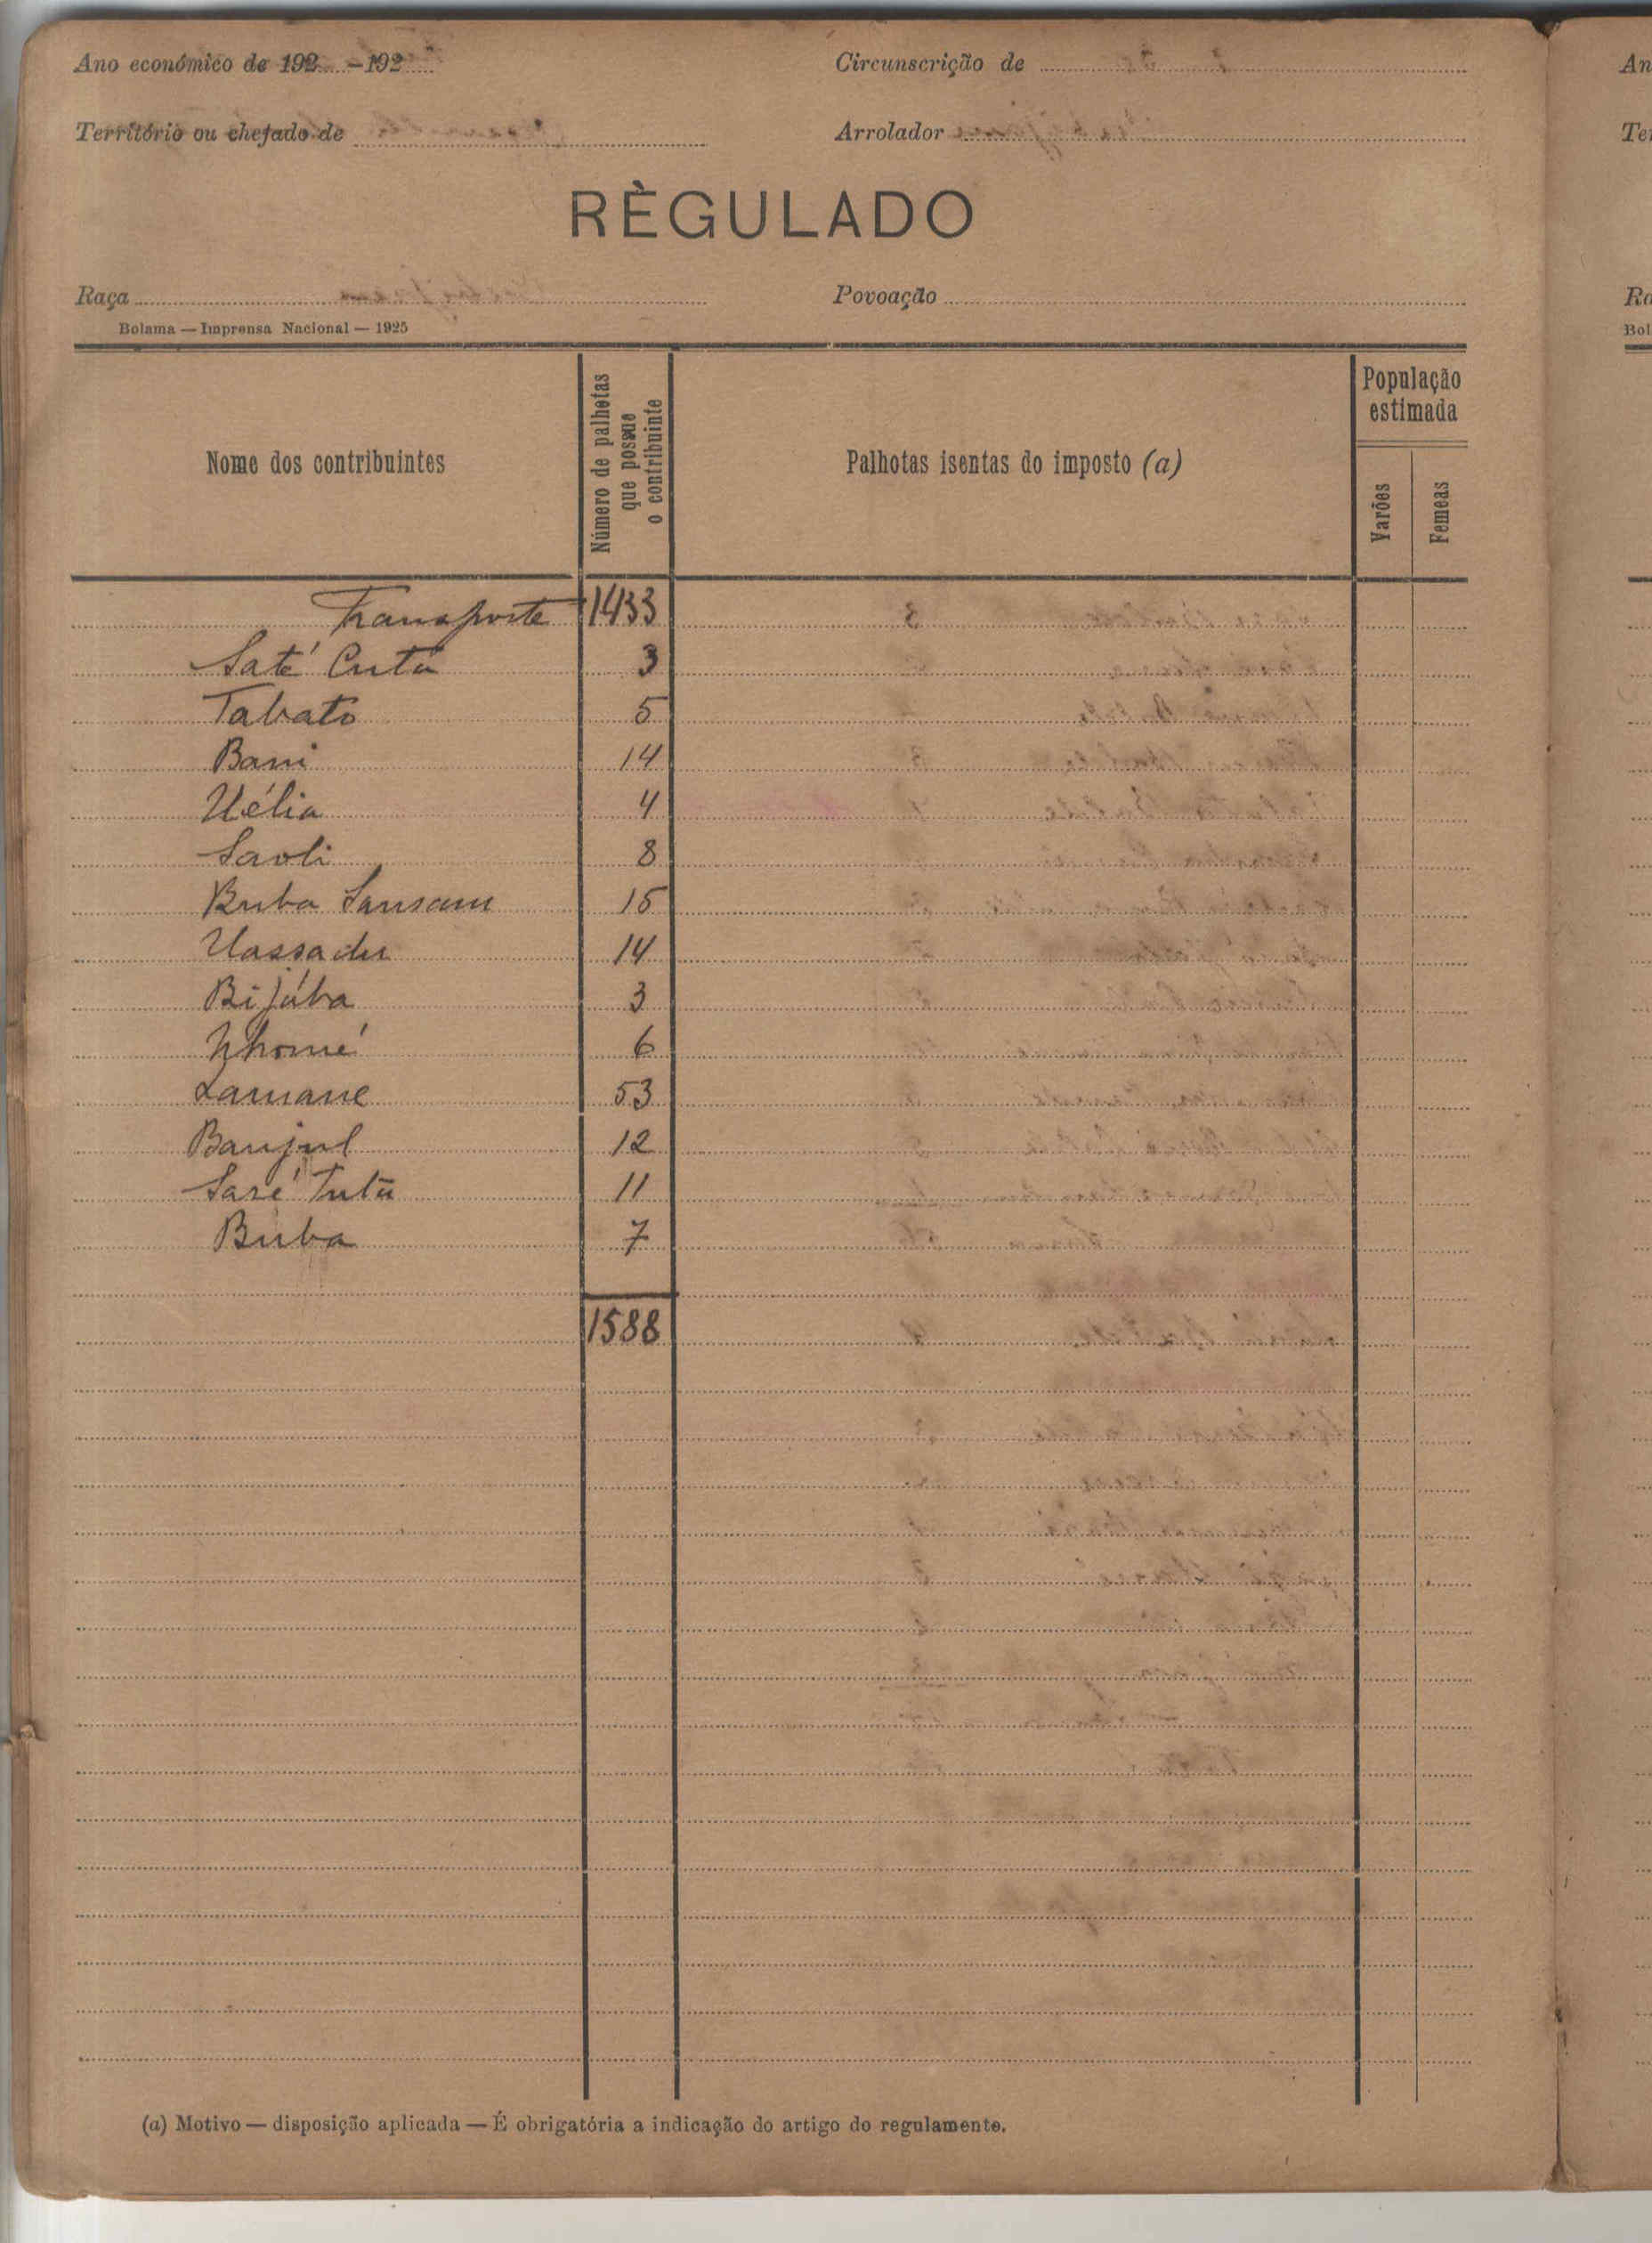 Ano económico de 192 -192
Circunscrição de
Território ou chefado de
Arrolador
RÈGULADO
Raça
Povoação
Bolama — Imprensa Nacional — 1925
Nome dos contribuintes
Número de palhotas
que possue
o contribuinte
Palhotas isentas do imposto (a)
População
estimada
Varões
Femeas
Transporte 1433
Saté Cutú 3
Tabato 5
Bani 14
Uélia 4
Saoli 8
Buba Sansam 15
Uassadu 14
Bijúba 3
Nhomé 6
Lamane 53
Banjul 12
Saré Tutú 11
Buba 7
1588
(a) Motivo — disposição aplicada — É obrigatória a indicação do artigo do regulamento.